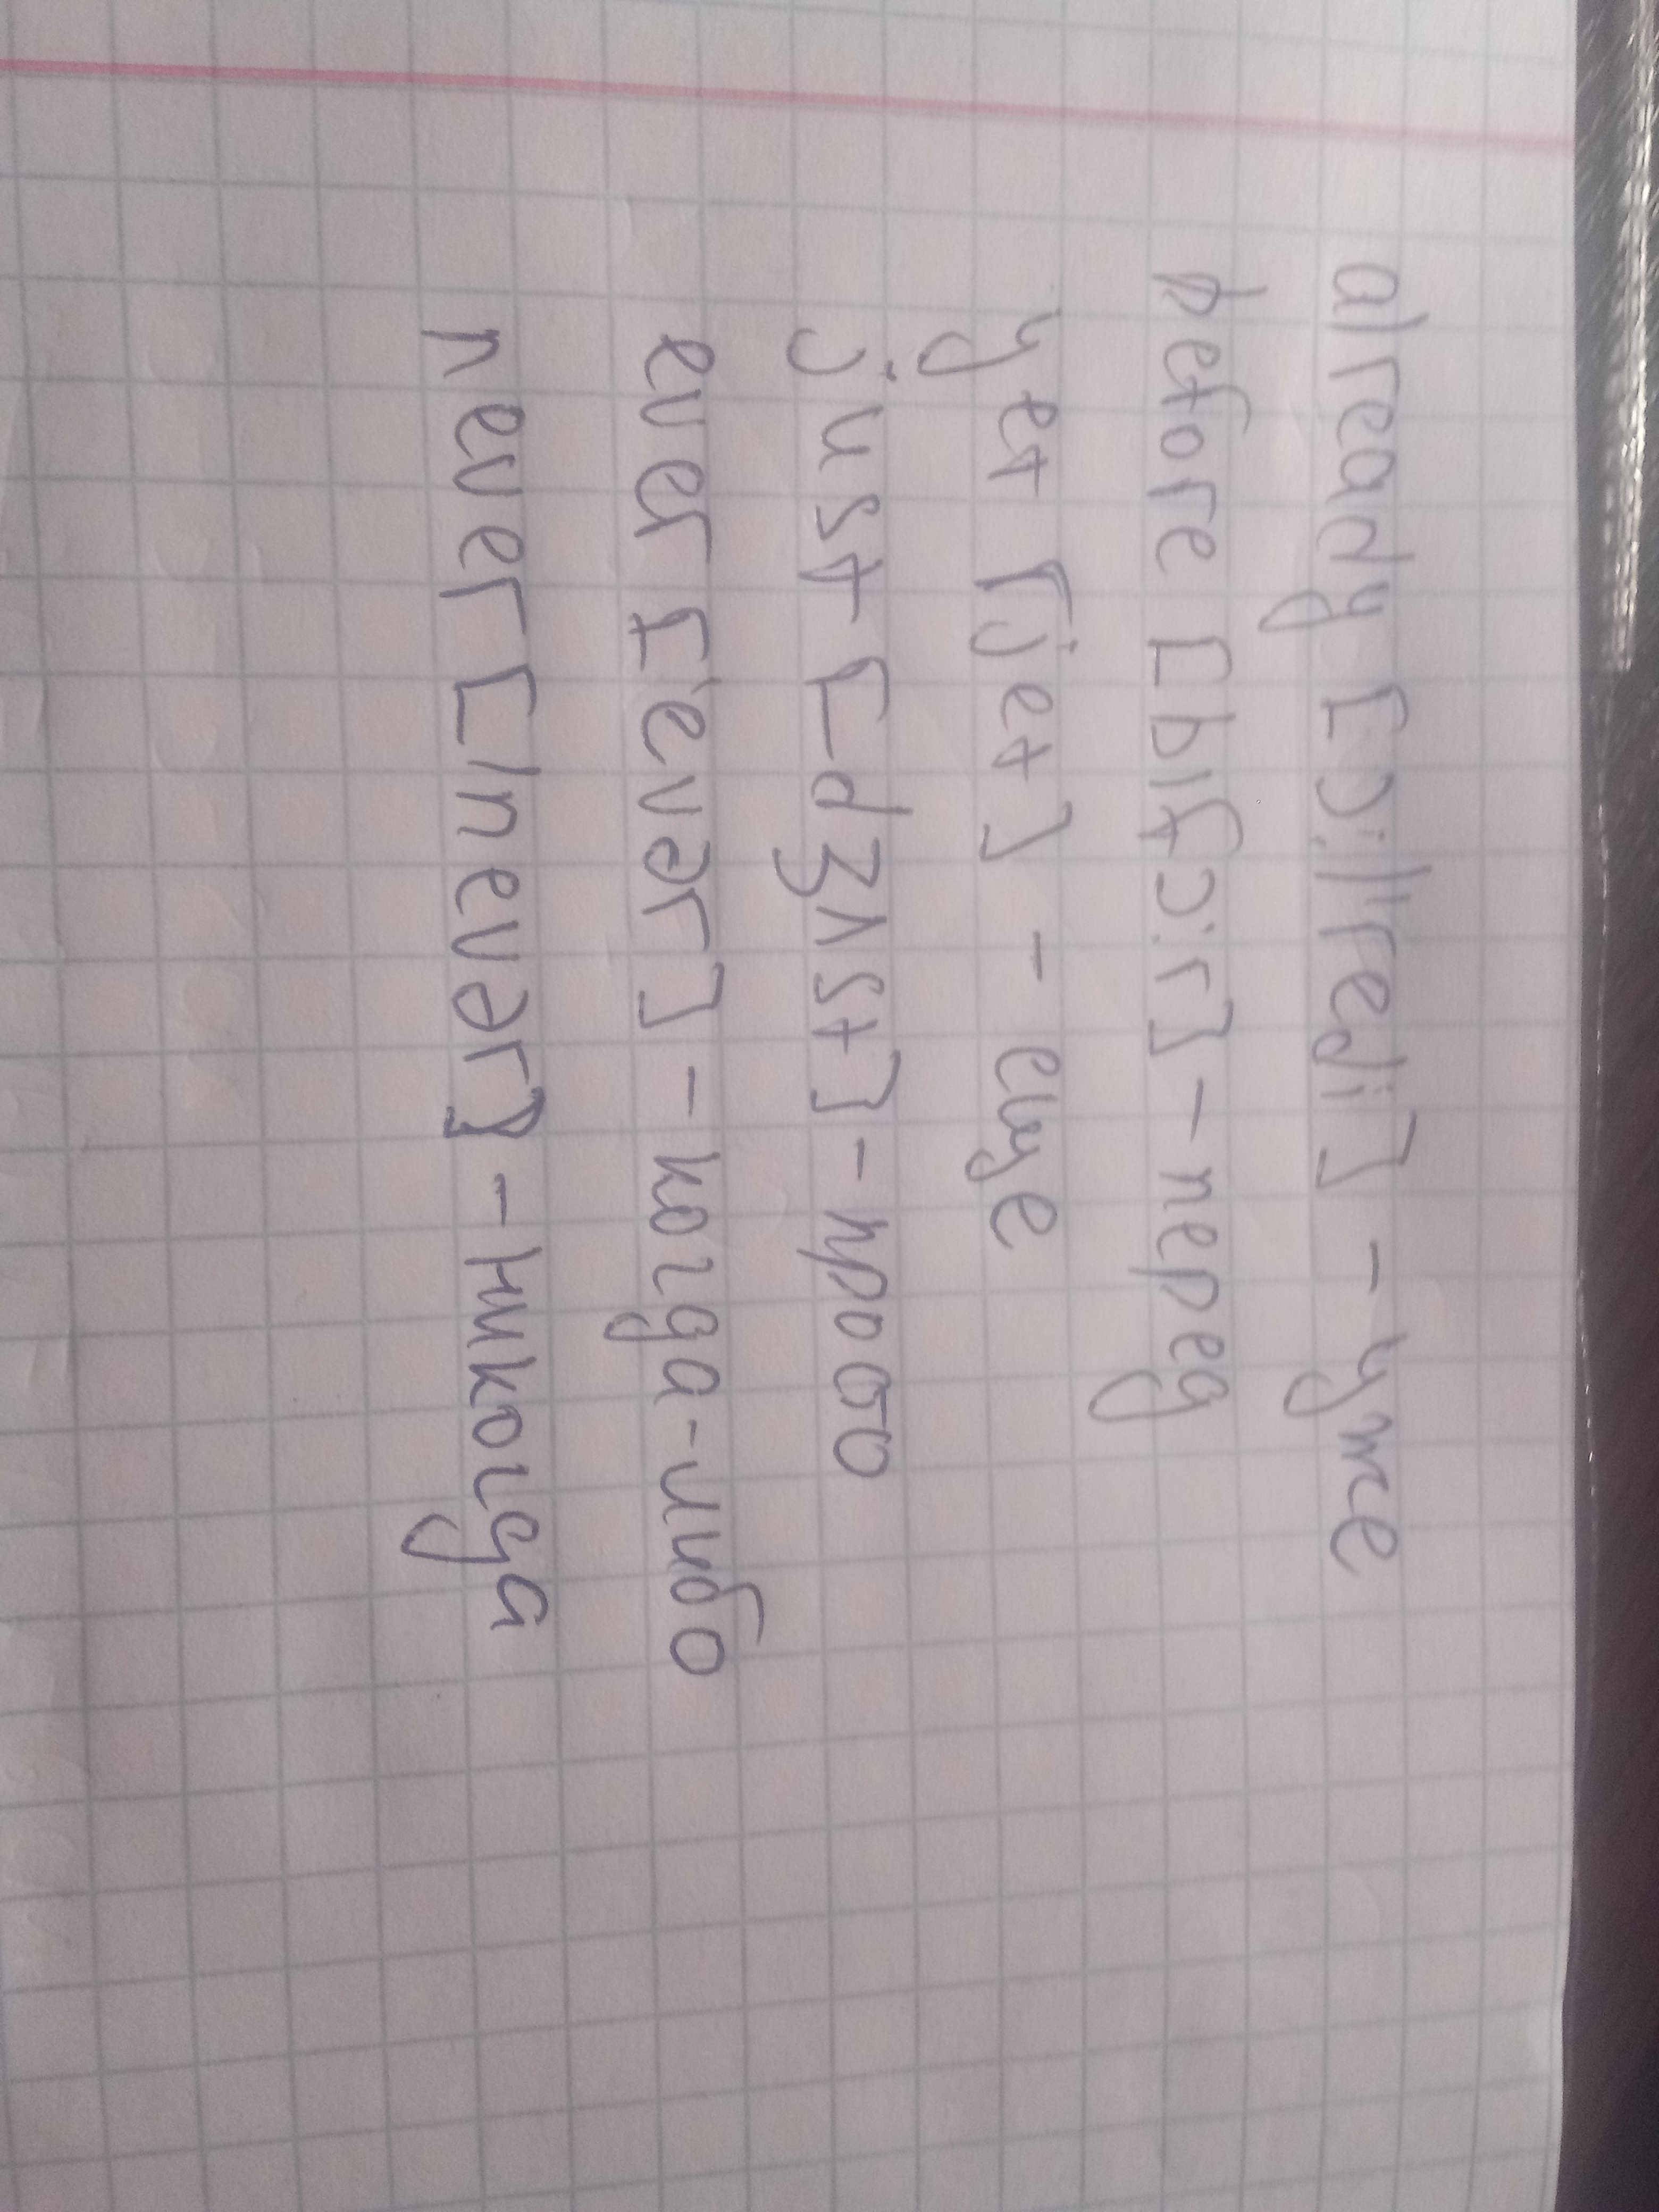 already [ɔ:l'redi] - уже
before [bıfɔ:r] - перед
yet [jet] - еще
just [dʒʌst] - просто
ever ['evər] - когда-либо
never ['nevər] - никогда